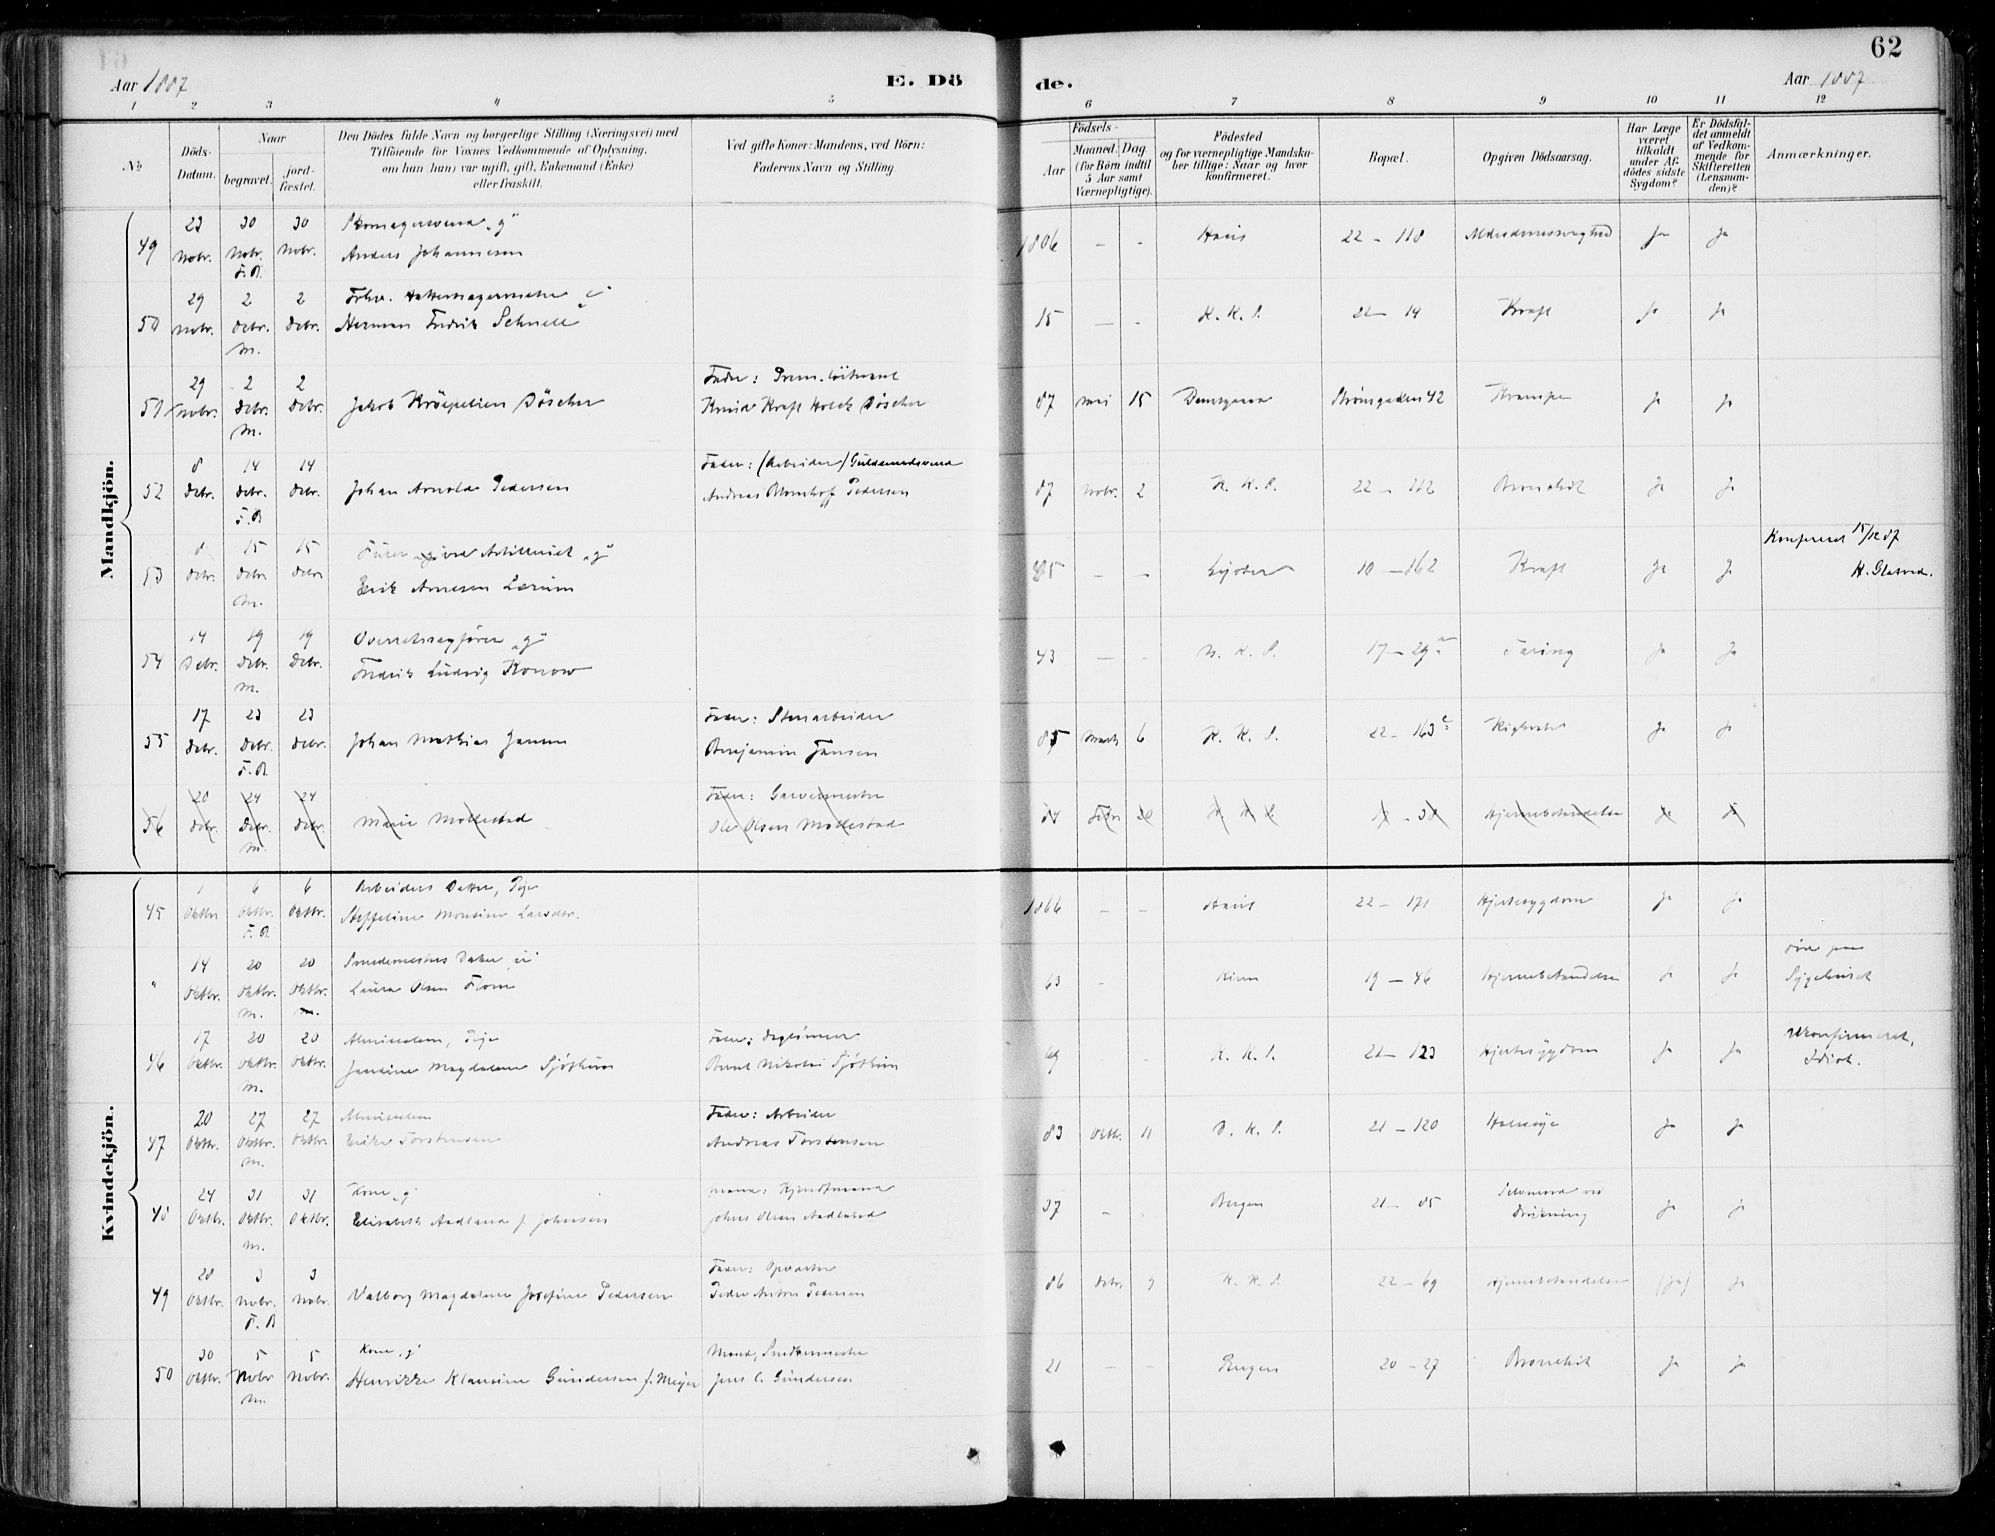 62
Aar 1887
E. Dö
de.
Aar 1887
1 2 3 4 5 6 7 8 9 10 11 12
No
Döds-Datum.
Naar
begravet.
jord-fæstet.
Den Dödes fulde Navn og borgerlige Stilling (Næringsvei) med
Tilföiende for Voxnes Vedkommende af Oplysning,
om han (hun) var ugift, gift, Enkemand (Enke)
eller fraskilt.
Ved gifte Koner: Mandens, ved Börn:
Faderens Navn og Stilling.
Födsels-
Aar
Maaned. Dag
(for Börn indtil
5 Aar samt
Værnepligtige).
Födested
og for værnepligtige Mandska-
ber tillige: Naar og hvor
konfirmeret.
Bopæl.
Opgiven Dödsaarsag.
Har Læge
været
tilkaldt
under Af-
dödes sidste
Sygdom?
Er Dödsfal-
det anmeldt
af Vedkom-
mende for
Skifteretten
(Lensman-
den)?
Anmærkninger.
Mandkjön.
49 23 Nobr. 30 Nobr. F.R. 30 Nobr. Skomagersvend "g" Anders Johannesen 1806 – – Haus 22 – 118 Alderdomssvaghed Ja Ja
50 29 Nobr. 2 Debr. M. 2 Debr. Herman Fredrik Schnell 15 – – K. K. S. 21 – 14 Kræft Ja Ja
51 29 Nobr. 2 Debr. M. 2 Debr. Jakob Kröepelien Döscher Fader: Prem. löitnant Knud Kraft Holck Döscher 87 Mai 15 Strömgaden 42 Krampe Ja Ja
52 8 Debr. 14 Debr. F.R. 14 Debr. Johan Arnold Pedersen Fader: (Arbeider) Guldsmedsvend Andreas Pedersen 87 Nobr. 2 K. K. S. 22 – 112 Bronchit Ja Ja
53 8 Debr. 15 Debr. M. 15 Debr. Furer ved Artilleriet "g" Erik Arnesen Lærum 35 – – 10 – 162 Kræft Ja Ja Konfereret 15/12 87 H. Glatved.
54 14 Debr. 19 Debr. M. 19 Debr. Overretssagförer "g" Fredrik Ludvig Konow 43 – – N. K. S. 17 – 29 a Tæring Ja Ja
55 17 Debr. 23 Debr. F.R. 23 Debr. Johan Mathias Jansen Fader: Stenarbeider Benjamin Jansen 85 Marts 6 K. K. S. 22 – 163 c Kighoste Ja Ja
56 20 Debr. 24 Debr. M. 24 Debr. Marie Mollestad Fader: Garvermester Ole Olsen Mollestad 84 Febr 20 K K S – 38 Hjernebetændelse Ja Ja
Kvindekjön.
45 1 Oktbr 6 Oktbr. F.R. 6 Oktbr. Arbeiders Datter, Pige Monsine Larsdtr. 1866 – – Haus 22 – 171 Hjertesygdom Ja Ja
" 14 Oktbr. 20 Oktbr. M. 20 Oktbr. M. Smedemesters Datter "u" Laura Olsen 63 – Kinn 19 – 46 Hjernebetændelse Ja Ja Död paa Sygehuset
46 17 Oktbr. 20 Oktbr. M. 20 Oktbr. Almisselem, Pige Jansine Magdalene Sjöthun Fader: Daglönner Bernt Nikolai Sjöthun 69 – – K. K. S. 21 – 123 Hjertesygdom Ja Ja Ukonfirmeret, Idiot.
47 20 Oktbr. 27 Oktbr. M. 27 Oktbr. Almisselem Torstensen Fader: Arbeider Andreas Torstensen 83 Oktbr. 11 D. K. S. 21 – 120 Halssyge Ja Ja
48 24 Oktbr. 31 Oktbr. M. 31 Oktbr. Kone "g" Elisabeth Aadland f. Johnsen Mand: Johns Olsen Aadland 37 – Bergen 21 – 85 Selvmord ved Drukning Ja Ja
49 28 Oktbr. 3 Nobr. F.R 3 Nobr. Valborg Magdalene Josefine Pedersen Fader: Opvarter Peder Anton Pedersen 86 Debr. 9 K. K. S. 22 – 69 Hjernebetændelse (Ja) Ja
50 30 Oktbr. 5 Nobr M. 5 Nobr. Kone "g" Henrikke Klausine Gundersen f. Meyer Mand, Snedkermester Jens C. Gundersen 21 – – Bergen 20 – 27 Bronchit Ja Ja